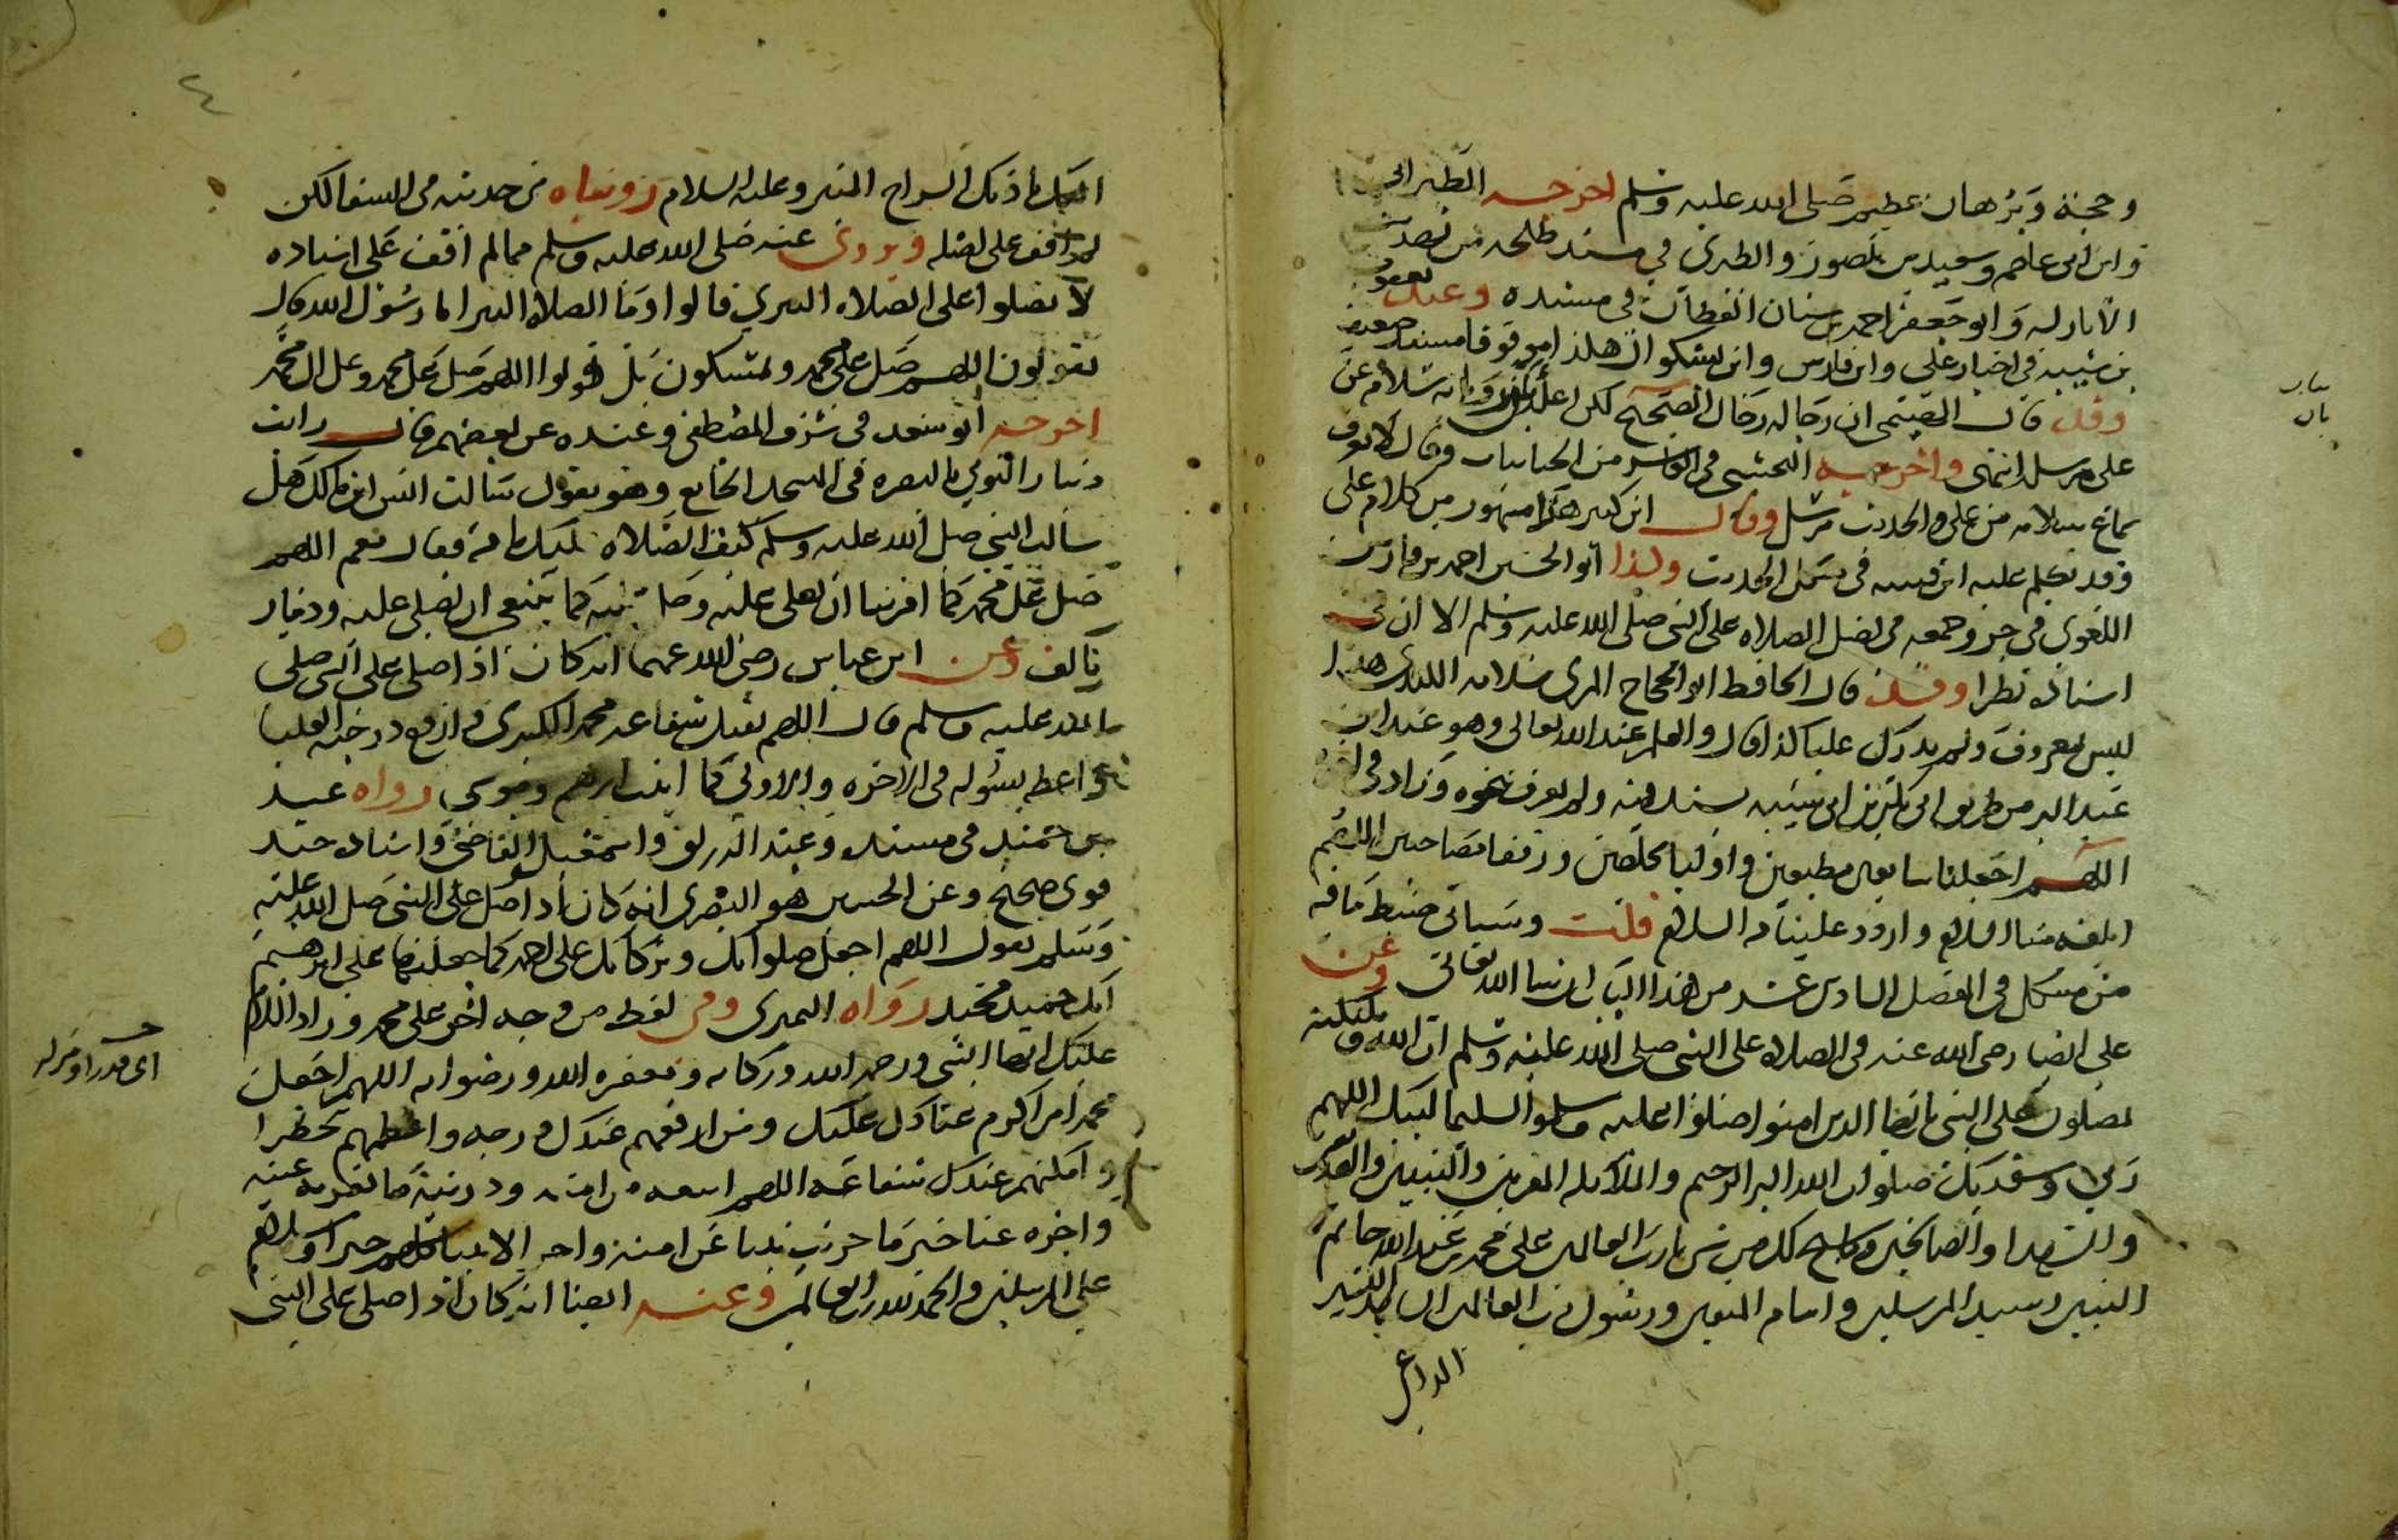 وحجة وبرهان عظيم صلى الله عليه وسلم اخرجه الطبراني
وابن ابي عاصم وسعيد بن منصور والطبري في مسند طلحة من تهذيب
الآثار له وابو جعفر احمد بن سنان القطان في مسنده وعنه يعقوب
بن شيبة في اخبار علي وابن فارس وابن بشكوال هكذا موقوفا بسند ضعيف
وقد قال الهيثمي ان رجاله رجال الصحيح لكن اعله بان رواية سلامة عن
علي مرسلة انتهى واخرجه النخشبي في العاشر من الحنائيات وقال لا يعرف
سماع سلامه من علي والحديث مرسل وقال ابن كثير هذا مشهور من كلام علي
وقد تكلم عليه ابن قتيبه في مشكل الحديث وكذا ابو الحسين احمد بن فارس
اللغوي في جزء جمعه في فضل الصلاه على النبي صلى الله عليه وسلم الا ان في
اسناده نظرا وقد قال الحافظ ابو الحجاج المزي سلامه الكندي هذا
ليس بمعروف ولم يدرك عليا كذا قال والعلم عند الله تعالى وهو عند ابن
عبد البر من طريق ابي بكر بن ابي شيبه بسند فيه ولم يعرف نحوه وزاد في اخره
اللهم اجعلنا سامعين مطيعين واوليا مخلصين ورفقا مصاحبين اللهم
ابلغه منا السلام واردد علينا منه السلام قلت وسياتي ضبط ما فيه
من مشكل في الفصل السادس عشر من هذا الباب ان شا الله تعالى وعن
علي ايضا رضي الله عنه في الصلاه على النبي صلى الله عليه وسلم ان الله وملائكته
يصلون على النبي يا ايها الذين امنوا صلوا عليه وسلموا تسليما لبيك اللهم
ربي وسعديك صلوات الله البر الرحيم والملائكه المقربين والنبيين والصديقين
والشهدا والصالحين وما سبح لك من شي يا رب العالمين على محمد بن عبد الله خاتم
النبيين وسيد المرسلين وامام المتقين ورسول رب العالمين الشاهد البشير
الداعي
بيان
بان
٤
اليك باذنك السراج المنير وعليه السلام رويناه من حديثه في الشفا لكن
لم اقف على اصله ويروى عنه صلى الله عليه وسلم مما لم اقف على اسناده
لا تصلوا علي الصلاه البترى قالوا وما الصلاة البترا يا رسول الله قال
تقولون اللهم صل على محمد وتمسكون بل قولوا اللهم صل على محمد وعلى ال محمد
اخرجه ابو سعد في شرف المصطفى وعنده عن بعضهم قال رايت
دينار النوبي بالبصره في المسجد الجامع وهو يقول سالت انس ابن مالك هل
سالت النبي صلى الله عليه وسلم كيف الصلاه عليك فقال نعم اللهم
صل على محمد كما امرتنا ان نصلي عليه وصل عليه كما ينبغي ان يصلى عليه ودينار
تالف وعن ابن عباس رضي الله عنهما انه كان اذا صلى على النبي صلى
الله عليه وسلم قال اللهم تقبل شفاعة محمد الكبرى وارفع درجته العليا
واعطه سؤله في الاخره والاولى كما اتيت ابرهيم وموسى رواه عبد
بن حميد في مسنده وعبد الرزاق واسمعيل القاضي واسناده جيد
قوي صحيح وعن الحسن هو البصري انه كان اذا صلى على النبي صلى الله عليه
وسلم يقول اللهم اجعل صلواتك وبركاتك على احمد كما جعلتها على ابرهيم
انك حميد مجيد رواه النميري وفي لفظ من وجه اخر على محمد وزاد السلام
عليك ايها النبي ورحمة الله وبركاته ومغفره الله ورضوانه اللهم اجعل
محمدا من اكرم عبادك عليك ومن ارفعهم عندك درجه واعظمهم خطرا
وامكنهم عندك شفاعة اللهم اتبعه من امته وذريته ما تقر به عينه
واجزه عنا خير ما جزيت نبيا عن امته واجز الانبيا كلهم خيرا وسلام
على المرسلين والحمد لله رب العالمين وعنه ايضا انه كان اذا صلى على النبي
اي قدرا ومنزلة